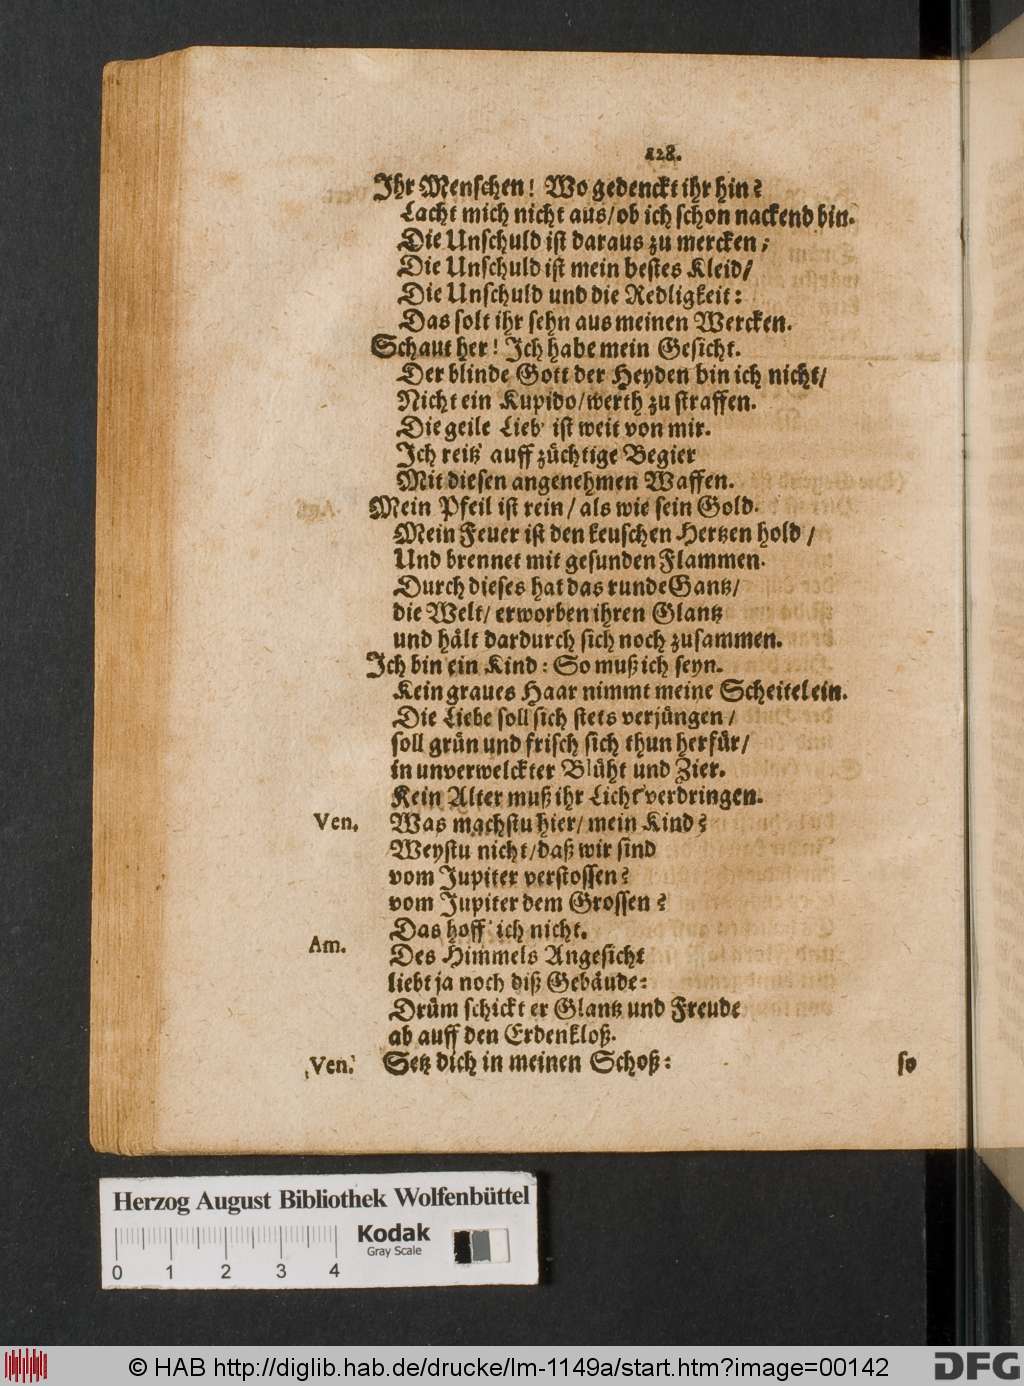 128.
Ihr Menschen! Wo gedenckt ihr hin?
Lacht mich nicht aus/ob ich schon nackend bin.
Die Unschuld ist daraus zu mercken;
Die Unschuld ist mein bestes Kleid/
Die Unschuld und die Redligkeit:
Das solt ihr sehn aus meinen Wercken.
Schaut her! Ich habe mein Gesicht.
Der blinde Gott der Heyden bin ich nicht/
Nicht ein Kupido/werth zu straffen.
Die geile Lieb' ist weit von mir.
Ich reitz' auff züchtige Begier
Mit diesen angenehmen Waffen.
Mein Pfeil ist rein/ als wie sein Gold.
Mein Feuer ist den keuschen Hertzen hold/
Und brennet mit gesunden Flammen.
Durch dieses hat das runde Gantz/
die Welt/ erworben ihren Glantz
und hält dardurch sich noch zusammen.
Ich bin ein Kind: So muß ich seyn.
Kein graues Haar nimmt meine Scheitel ein.
Die Liebe soll sich stets verjüngen/
soll grün und frisch sich thun herfür/
in unverwelckter Blüht und Zier.
Kein Alter muß ihr Licht verdringen.
Ven. Was machstu hier/ mein Kind?
Weystu nicht/daß wir sind
vom Jupiter verstossen?
vom Jupiter dem Grossen?
Das hoff' ich nicht.
Am. Des Himmels Angesicht
liebt ja noch diß Gebäude:
Drüm schickt er Glantz und Freude
ab auff den Erdenkloß.
Ven. Setz dich in meinen Schoß:
so
Herzog August Bibliothek Wolfenbüttel
Kodak
Gray Scale
0 1 2 3 4
© HAB http://diglib.hab.de/drucke/lm-1149a/start.htm?image=00142
DFG